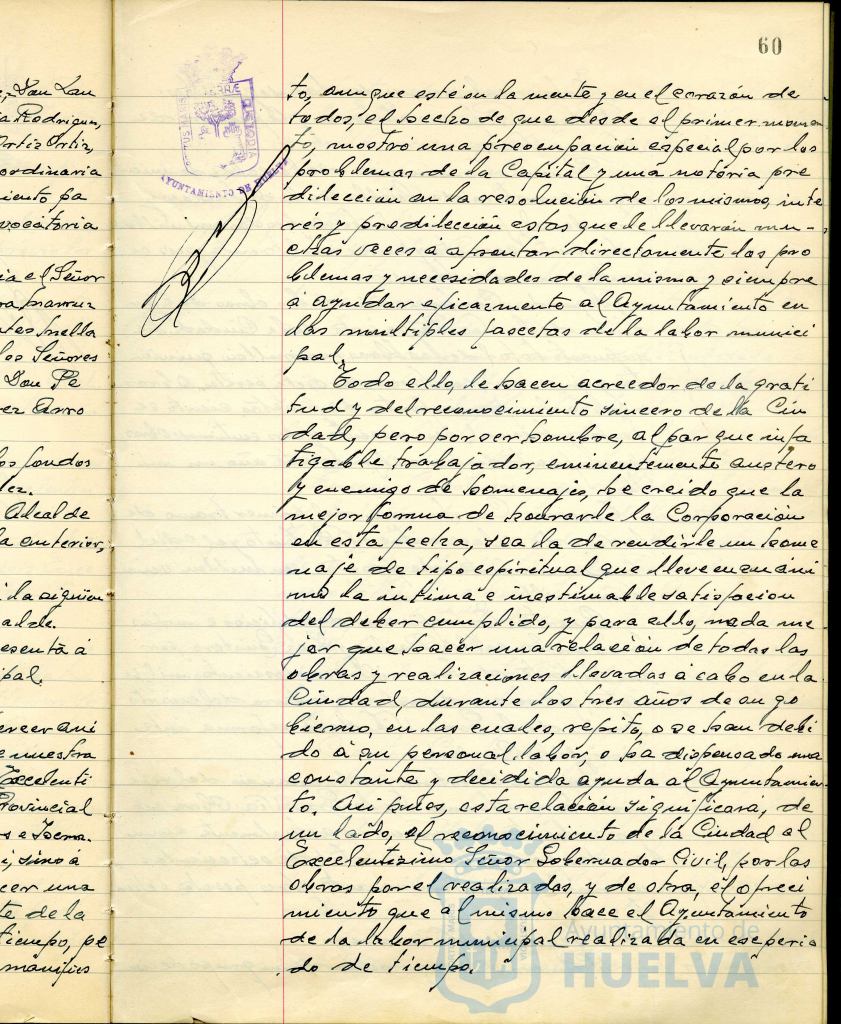 60
e, Don Lau
a Rodriguez,
Ortiz Ortiz,
ordinaria
iento pa
vocatoria
ia el Señor
los Señores
Don Pe
ez Arro
os fondos
lez.
Alcalde
a anterior,
la siguien
alde.
esenta á
ipal.
ercer ani
e nuestra
Excelenti
Provincial
i, sino á
cer una
te de la
tiempo, pe
manifies
AYUNTAMIENTO DE HUELVA
to, aunque esté en la mente y en el corazón de
todos, el hecho de que desde el primer momen-
to, mostró una preocupación especial por los
problemas de la Capital y una notoria pre
dilección en la resolución de los mismos, inte
rés y predilección estas que le llevarán mu-
chas veces á afrontar directamente los pro
blemas y necesidades de la misma y siempre
á ayudar eficazmente al Ayuntamiento en
las multiples fascetas de la labor munici
pal.
Todo ello, le hacen acreedor de la grati
tud y del reconocimiento sincero de la Ciu
dad, pero por ser hombre, al par que infa
tigable trabajador, eminentemente austero
y enemigo de homenajes, he creido que la
mejor forma de honrarle la Corporación
en esta fecha, sea la de rendirle un home
naje de tipo espiritual que lleve en su áni
mo la intima e inestimable satisfacion
del deber cumplido, y para ello, nada me
jor que hacer una relación de todas las
obras y realizaciones llevadas á cabo en la
Ciudad, durante los tres años de su go
bierno, en las cuales, repito, o se han debi
do á su personal labor, o ha dispensado una
constante y decidida ayuda al Ayuntamien-
to. Asi pues, esta relación significará, de
un lado, el reconocimiento de la Ciudad al
Excelentisimo Señor Gobernador Civil, por las
obras por el realizadas, y de otra, el ofreci
miento que al mismo hace el Ayuntamiento
de la labor municipal realizada en ese perio
do de tiempo.
Ayuntamiento de
HUELVA